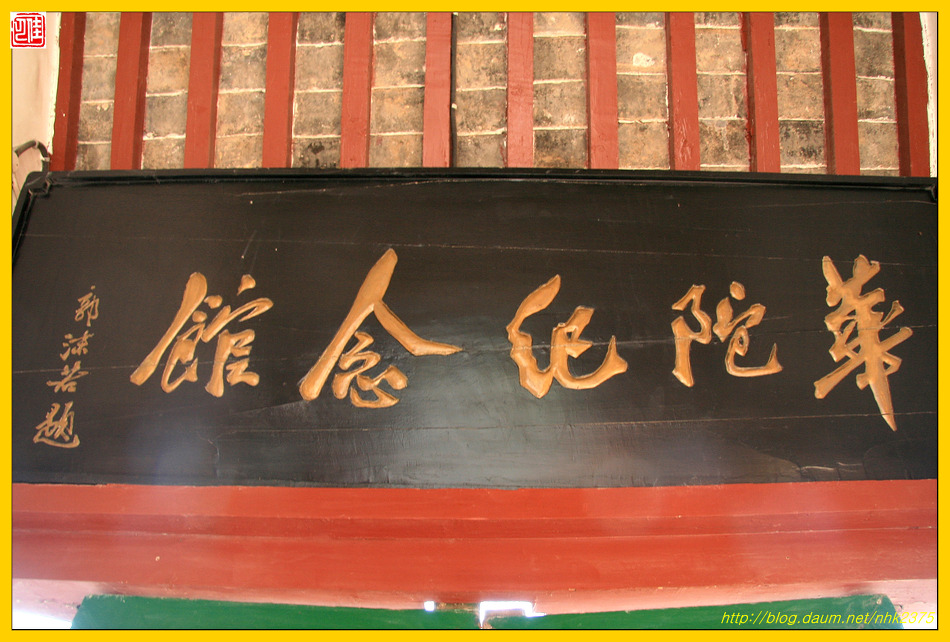 華陀纪念館
郭沫若題
http://blog.daum.net/nhk2375